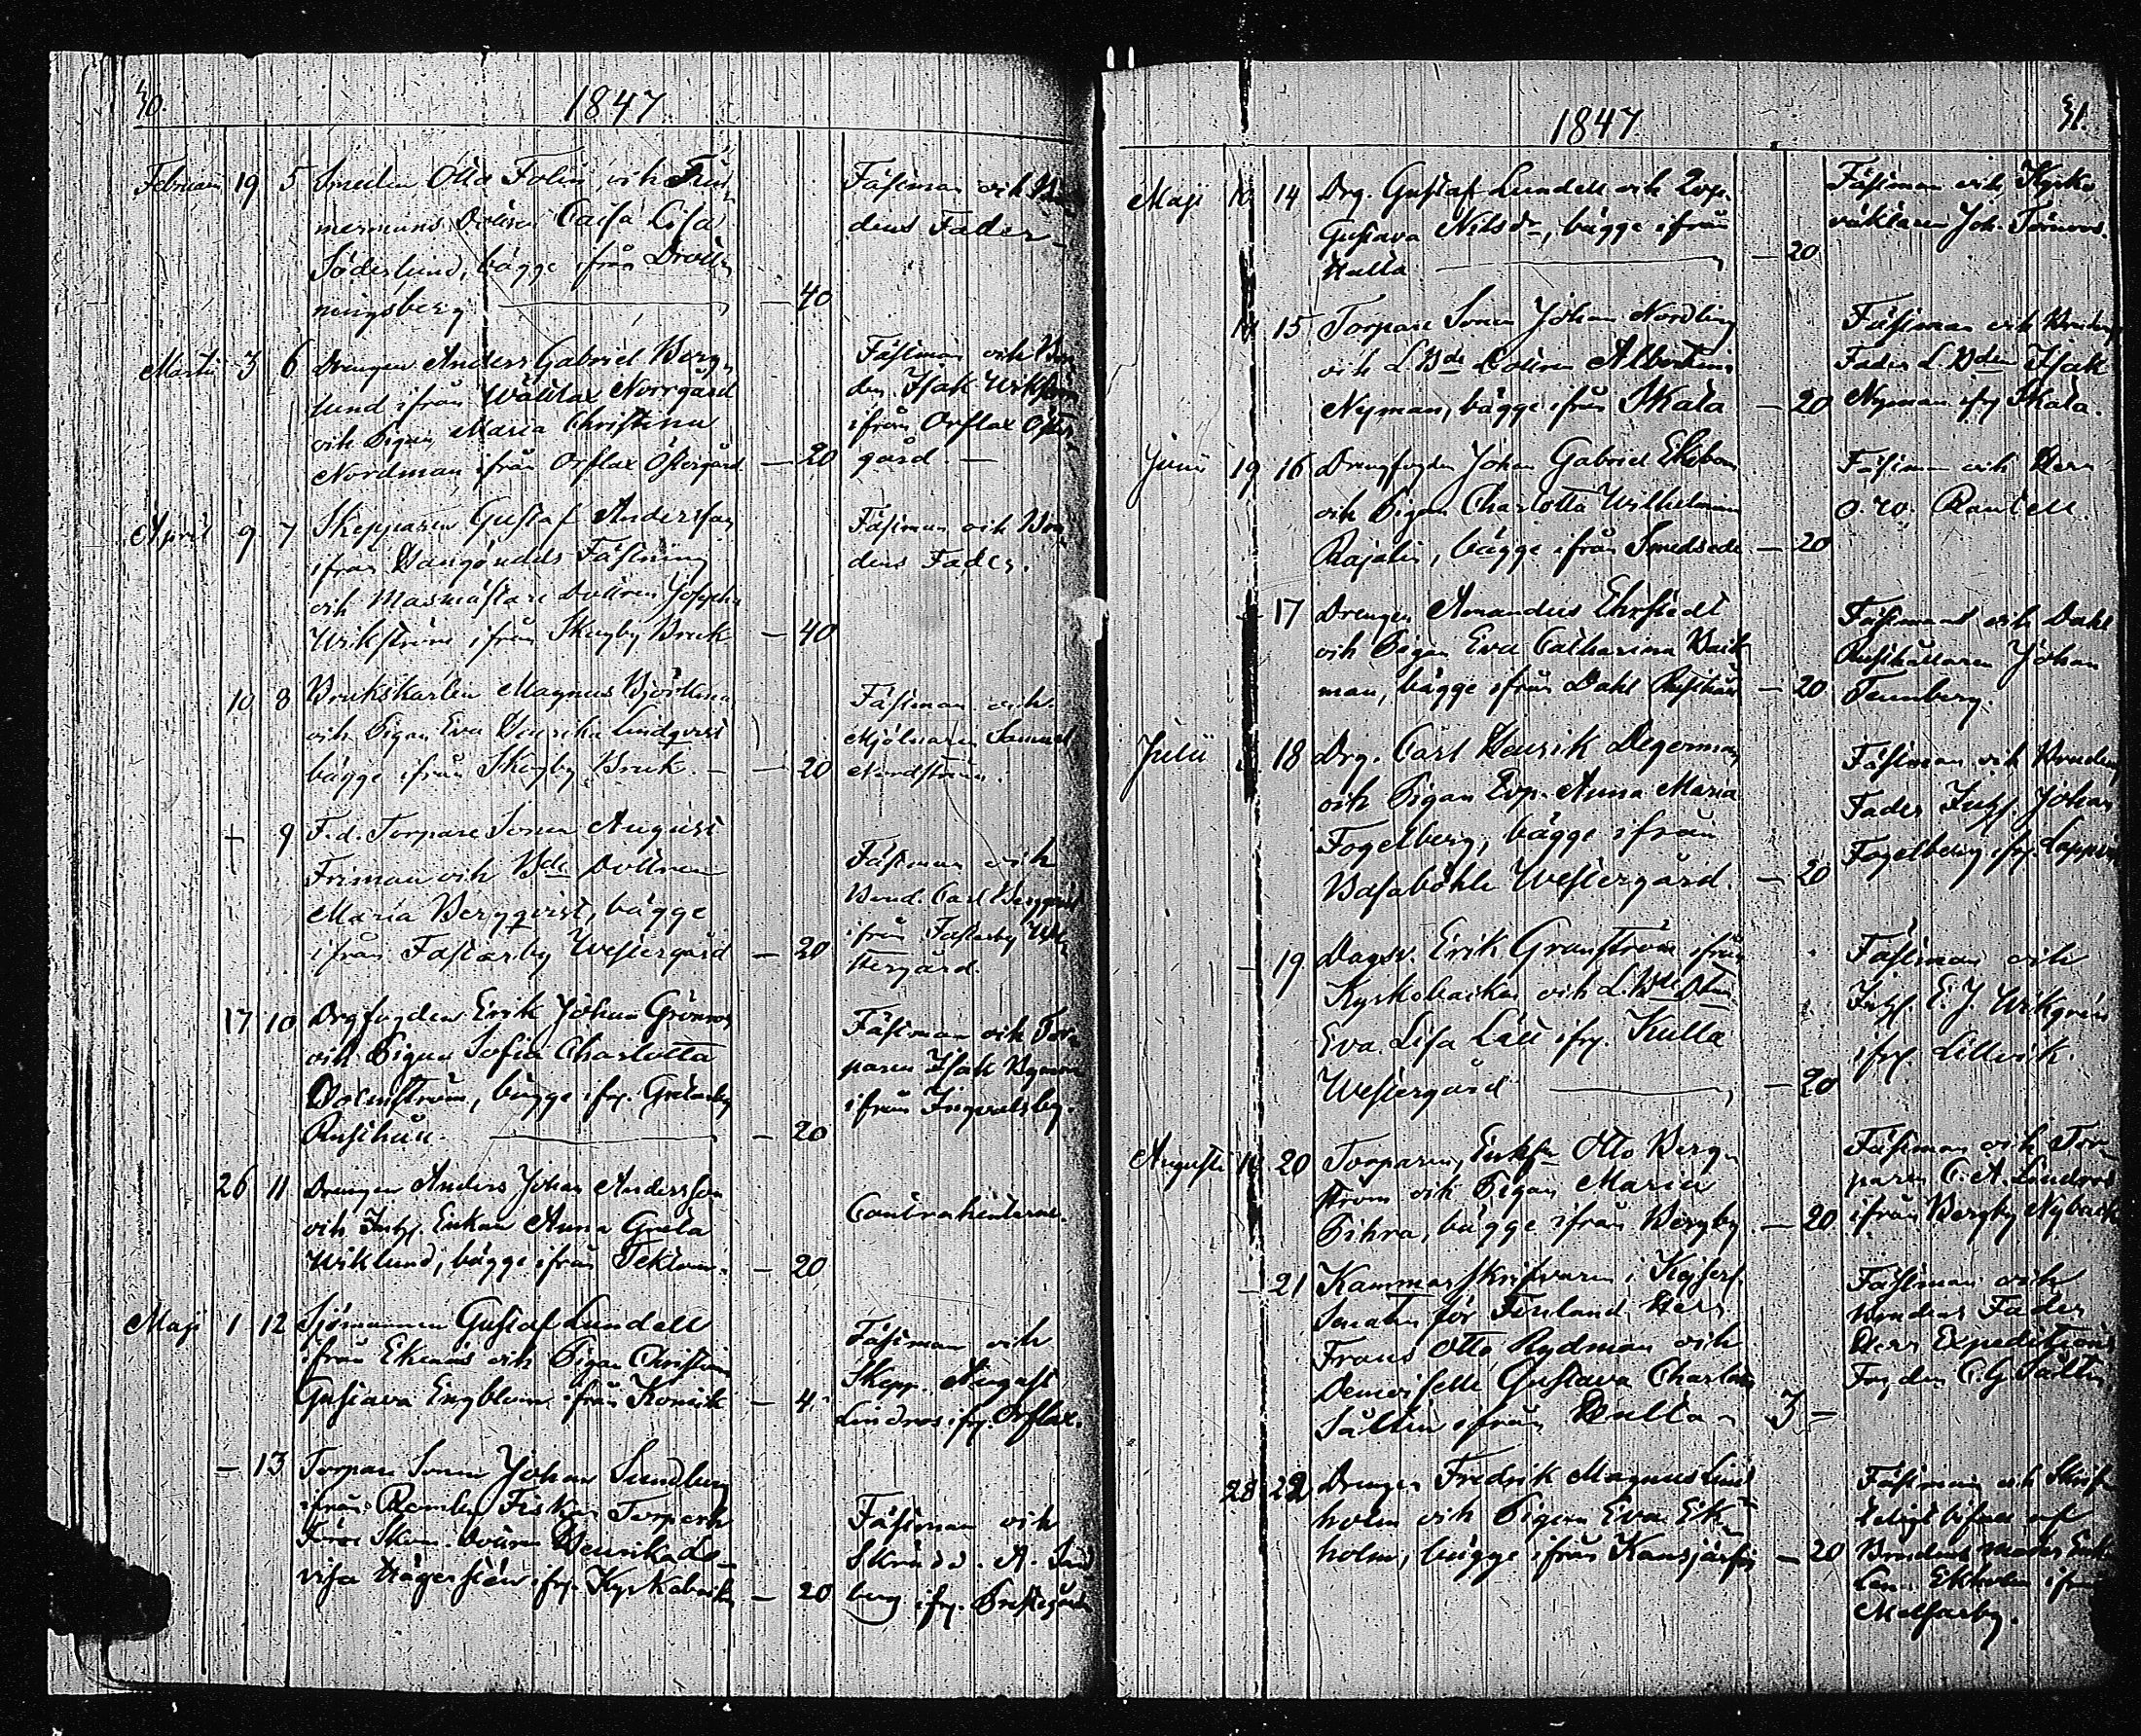 1847
Februarii 19 5 Smeden Otto Folin och Tim-
mermans Dottren Caisa Lisa
Söderlund, bägge ifrån Drott-
ningsberg — 40
Fästman och Bru-
dens Fader
Martii 3 6 Drengen Anders Gabriel Berg-
lund ifrån Norrgård
och Pigan Maria Christina
Nordman ifrån Orslax Östergård — 20
Fästman och
Isak
ifrån Orslax Öster-
gård —
April 9 7 Skepparen Gustaf Andersson
ifrån Hangöudds Fästning
och Masmästare Dottren Josepha
Wikström ifrån Skogby Bruk — 40
Fästman och Bru-
dens Fader.
10 8 Brukskarlen Magnus Björkman
och Pigan Eva Henrika Lindqvist
bägge ifrån Skogby Bruk. — 20
Fästman och
Mjölnaren Samuel
Nordström.
— 9 F.d. Torpare Sonen August
Friman och Bde Dottren
Maria Bergqvist, bägge
ifrån Fastarby Westergård — 20
Fästman och
Bond. Carl Bergqvist
ifrån Fastarby We-
stergård.
17 10 Drgfogden Erik Johan Grönroos
och Pigan Sofia Charlotta
Holmström, bägge ifr. Gretarby
Rusthåll. — 20
Fästman och Tor-
paren Isak
ifrån Ingvalsby.
26 11 Drengen Anders Johan Andersson
och Inhs. Enkan Anna Greta
Wiklund, bägge ifrån — 20
Contrahenterne.
Maji 1 12 Sjömannen Gustaf Lundell
ifrån Ekenäs och Pigan Christina
Gustava Engblom ifrån — 4
Fästman och
Skepp. August
Lindroos ifr. Orslax.
— 13 Torpare Sonen Johan Sundberg
ifrån Fiskar Torp och
Dottren Henrika Lo-
visa Hägerstén ifr. Kyrkobacken — 20
Fästman och
A. Sund-
berg ifr. Prestegården
1847 31.
Maji 14 Drg. Gustaf Lundell och
Gustava Nilsdr, bägge ifrån
Kulla — 20
Fästman och Kyrko-
väktaren Joh. Törnroos.
15 Torpare Sonen Johan Nordling
och L.Bde Dottren Albertina
Nyman, bägge ifrån Skata — 20
Fästman och Brudens
Fader L. Bden Isak
Nyman ifr. Skata.
Junii 19 16 Drengfogden Johan Gabriel Ekebom
och Pigan Charlotta Wilhelmina
Rajalin, bägge ifrån Smedsede — 20
Fästman och Herr
O. W. Rantell.
17 Drengen Amandus Ehrstedt
och Pigan Eva Catharina
man, bägge ifrån Dahl Rusthåll — 20
Fästman och Dahl
Rusthållaren Johan
Tennberg.
Julii 18 Drg. Carl Henrik Degerman
och Pigan Anna Maria
Fogelberg, bägge ifrån
Basaböhle Westergård. — 20
Fästman och Brudens
Fader Inhs. Johan
Fogelberg ifr.
— 19 Dagsv. Erik Granström ifrån
Kyrkobacken och L. Bde
Eva Lisa Lätt ifr. Kulla
Westergård — 20
Fästman och
Inhs. E. J. Wikgrén
ifr. Lillvik.
Augusti 20 Torparen, Enkln Otto Berg-
ström och Pigan Maria
Pihra, bägge ifrån Bergby — 20
Fästman och Tor-
paren C. A. Lindroos
ifrån Bergby Nybacka
— 21 Kammarskrifvaren i Kejserl.
Senaten för Finland Herr
Frans Otto Rydman och
Demoiselle Gustava Charlotta
Sältin ifrån Hulta 3 —
Fästman och
Brudens Fader
Herr Expeditions
Fogden C. G. Sältin.
28 22 Drengen Fredrik Magnus Lind-
holm och Pigan Eva Ek-
holm, bägge ifrån Kansjärfvi — 20
Fästman och Skrift-
eligt bifall af
Brudens moder Enk.
Ekholm ifrån
Melsarby.